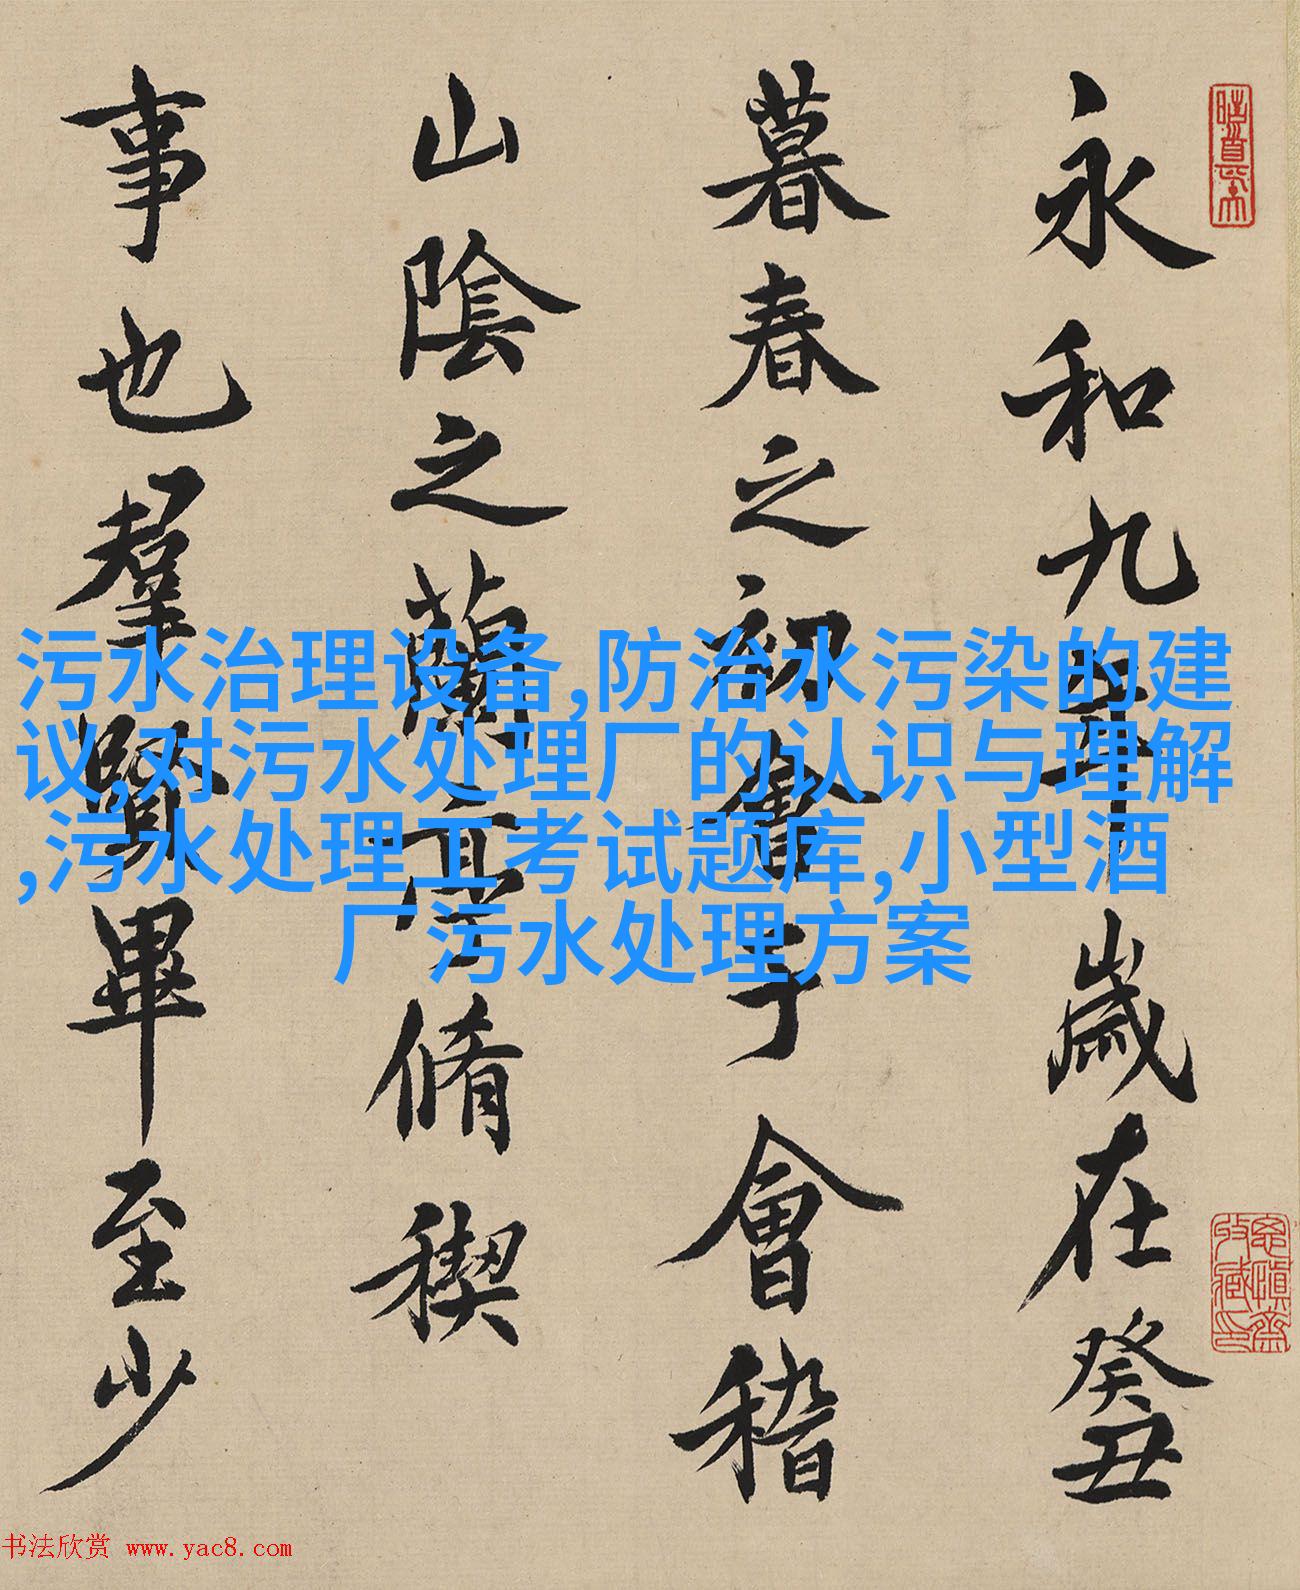 永和九年歲在癸丑
暮春之初會于會稽
山陰之蘭亭脩稧
事也羣賢畢至少
污水治理设备,防治水污染的建
议,对污水处理厂的认识与理解
,污水处理工考试题库,小型酒
厂污水处理方案
书法欣赏 www.yac8.com